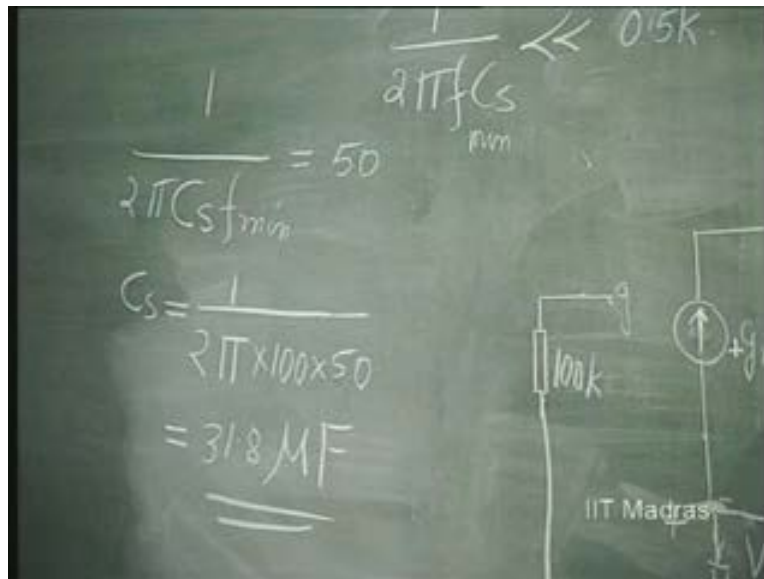 1/(2πfCs min) << 0.5k.
1/(2πCsfmin) = 50
Cs = 1/(2π×100×50)
= 31.8 μF
g
100k
+g
IIT Madras
V